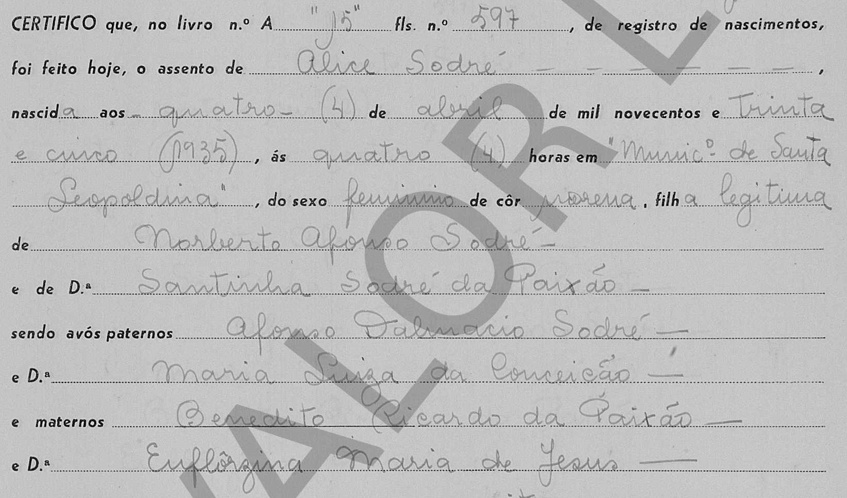 CERTIFICO que, no livro n.º A "15" fls. n.º 597, de registro de nascimentos,
foi feito hoje, o assento de Alice Sodré — — — — — — —,
nascida aos quatro – (4) de abril de mil novecentos e Trinta
e cinco (1935), ás quatro (4) horas em "Munic.º de Santa
Leopoldina", do sexo feminino de côr morena, filha legitima
de Norberto Afonso Sodré —
e de D.ª Santinha Sodré da Paixão —
sendo avós paternos Afonso Dalmacio Sodré —
e D.ª Maria Luiza da Conceição —
e maternos Benedito Ricardo da Paixão —
e D.ª Euflôrzina Maria de Jesus —
VALOR